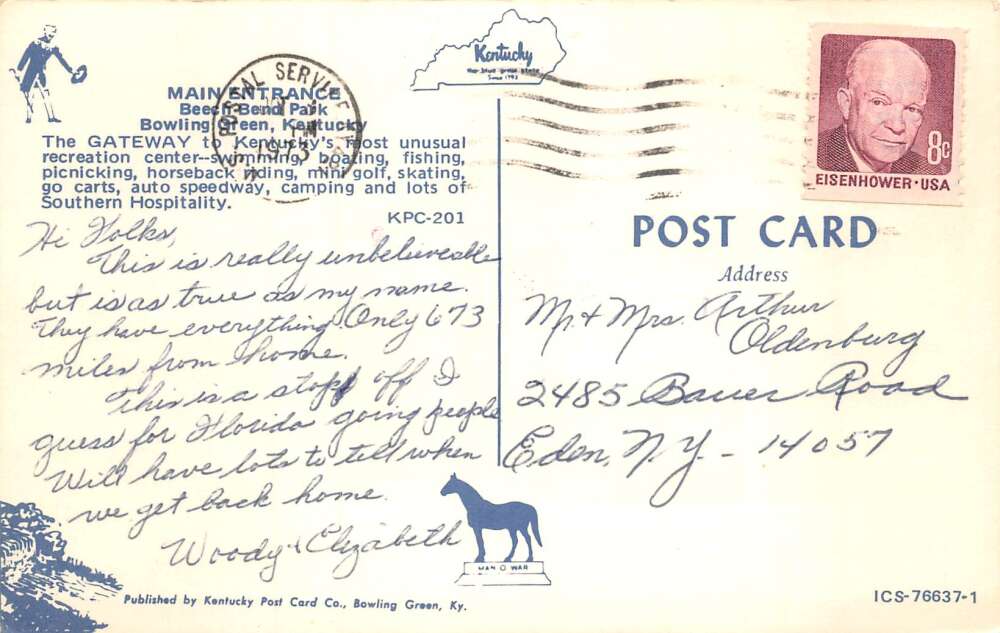 Kentucky
the blue grass state
Since 1792
MAIN ENTRANCE
Beech Bend Park
Bowling Green, Kentucky
The GATEWAY to Kentucky's most unusual
recreation center--swimming, boating, fishing,
picnicking, horseback riding, mini golf, skating,
go carts, auto speedway, camping and lots of
Southern Hospitality.
KPC-201
U.S. POSTAL SERVICE
PM
1973
EISENHOWER·USA
8c
Hi Folks,
This is really unbelieveable
but is as true as my name.
They have everything. Only 673
miles from home.
This is a stop off I
guess for Florida going people
Will have lots to tell when
we get back home.
Woody & Elizabeth
POST CARD
Address
Mr. + Mrs. Arthur
Oldenburg
2485 Bauer Road
Eden, N.Y. - 14057
MAN O WAR
Published by Kentucky Post Card Co., Bowling Green, Ky.
ICS-76637-1